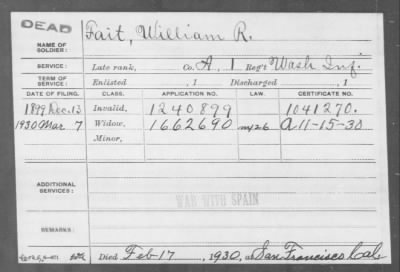 DEAD
NAME OF SOLDIER: Fait, William R.
SERVICE: Late rank, Co. A, 1 Reg't Wash Inf.
TERM OF SERVICE: Enlisted , 1 Discharged , 1
DATE OF FILING. CLASS. APPLICATION NO. LAW. CERTIFICATE NO.
1899 Dec. 13 Invalid, 1240899 1041270.
1930 Mar. 7 Widow, 1662690 my26 A 11-15-30
Minor,
ADDITIONAL SERVICES:
WAR WITH SPAIN
REMARKS:
Died Feb-17, 1930, at San Francisco Cal